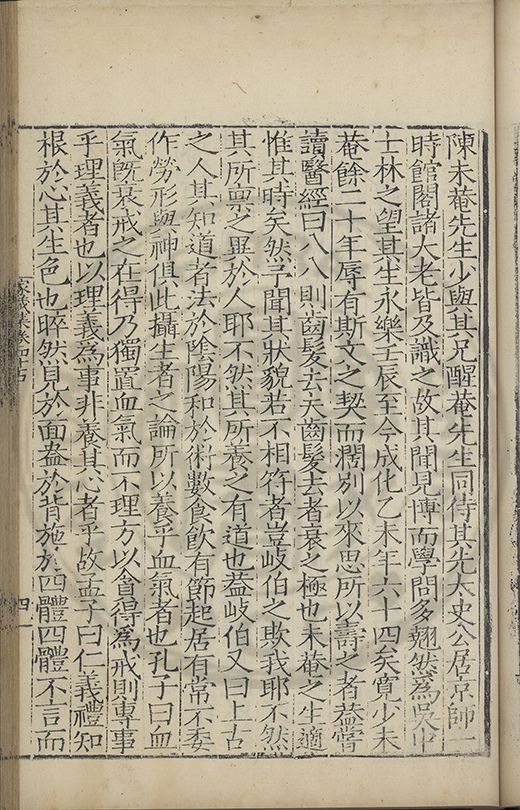 陳未菴先生少與其兄醒菴先生同侍其先太史公居京師一
時館閣諸大老皆及識之故其聞見博而學問多翹然爲吳中
士林之望其生永樂壬辰至今成化乙未年六十四矣寬少未
菴餘二十年辱有斯文之契而闊別以來思所以壽之者葢嘗
讀醫經曰八八則齒髮去夫齒髮去者衰之極也未菴之生適
惟其時矣然予聞其狀貌若不相符者豈岐伯之欺我耶不然
其所稟之異於人耶不然其所養之有道也葢岐伯又曰上古
之人其知道者法於陰陽和於術數食飲有節起居有常不妄
作勞形與神俱此攝生者之論所以養乎血氣者也孔子曰血
氣旣衰戒之在得乃獨置血氣而不理方以貪得爲戒則專事
乎理義者也以理義爲事非養其心者乎故孟子曰仁義禮知
根於心其生色也睟然見於面盎於背施於四體四體不言而